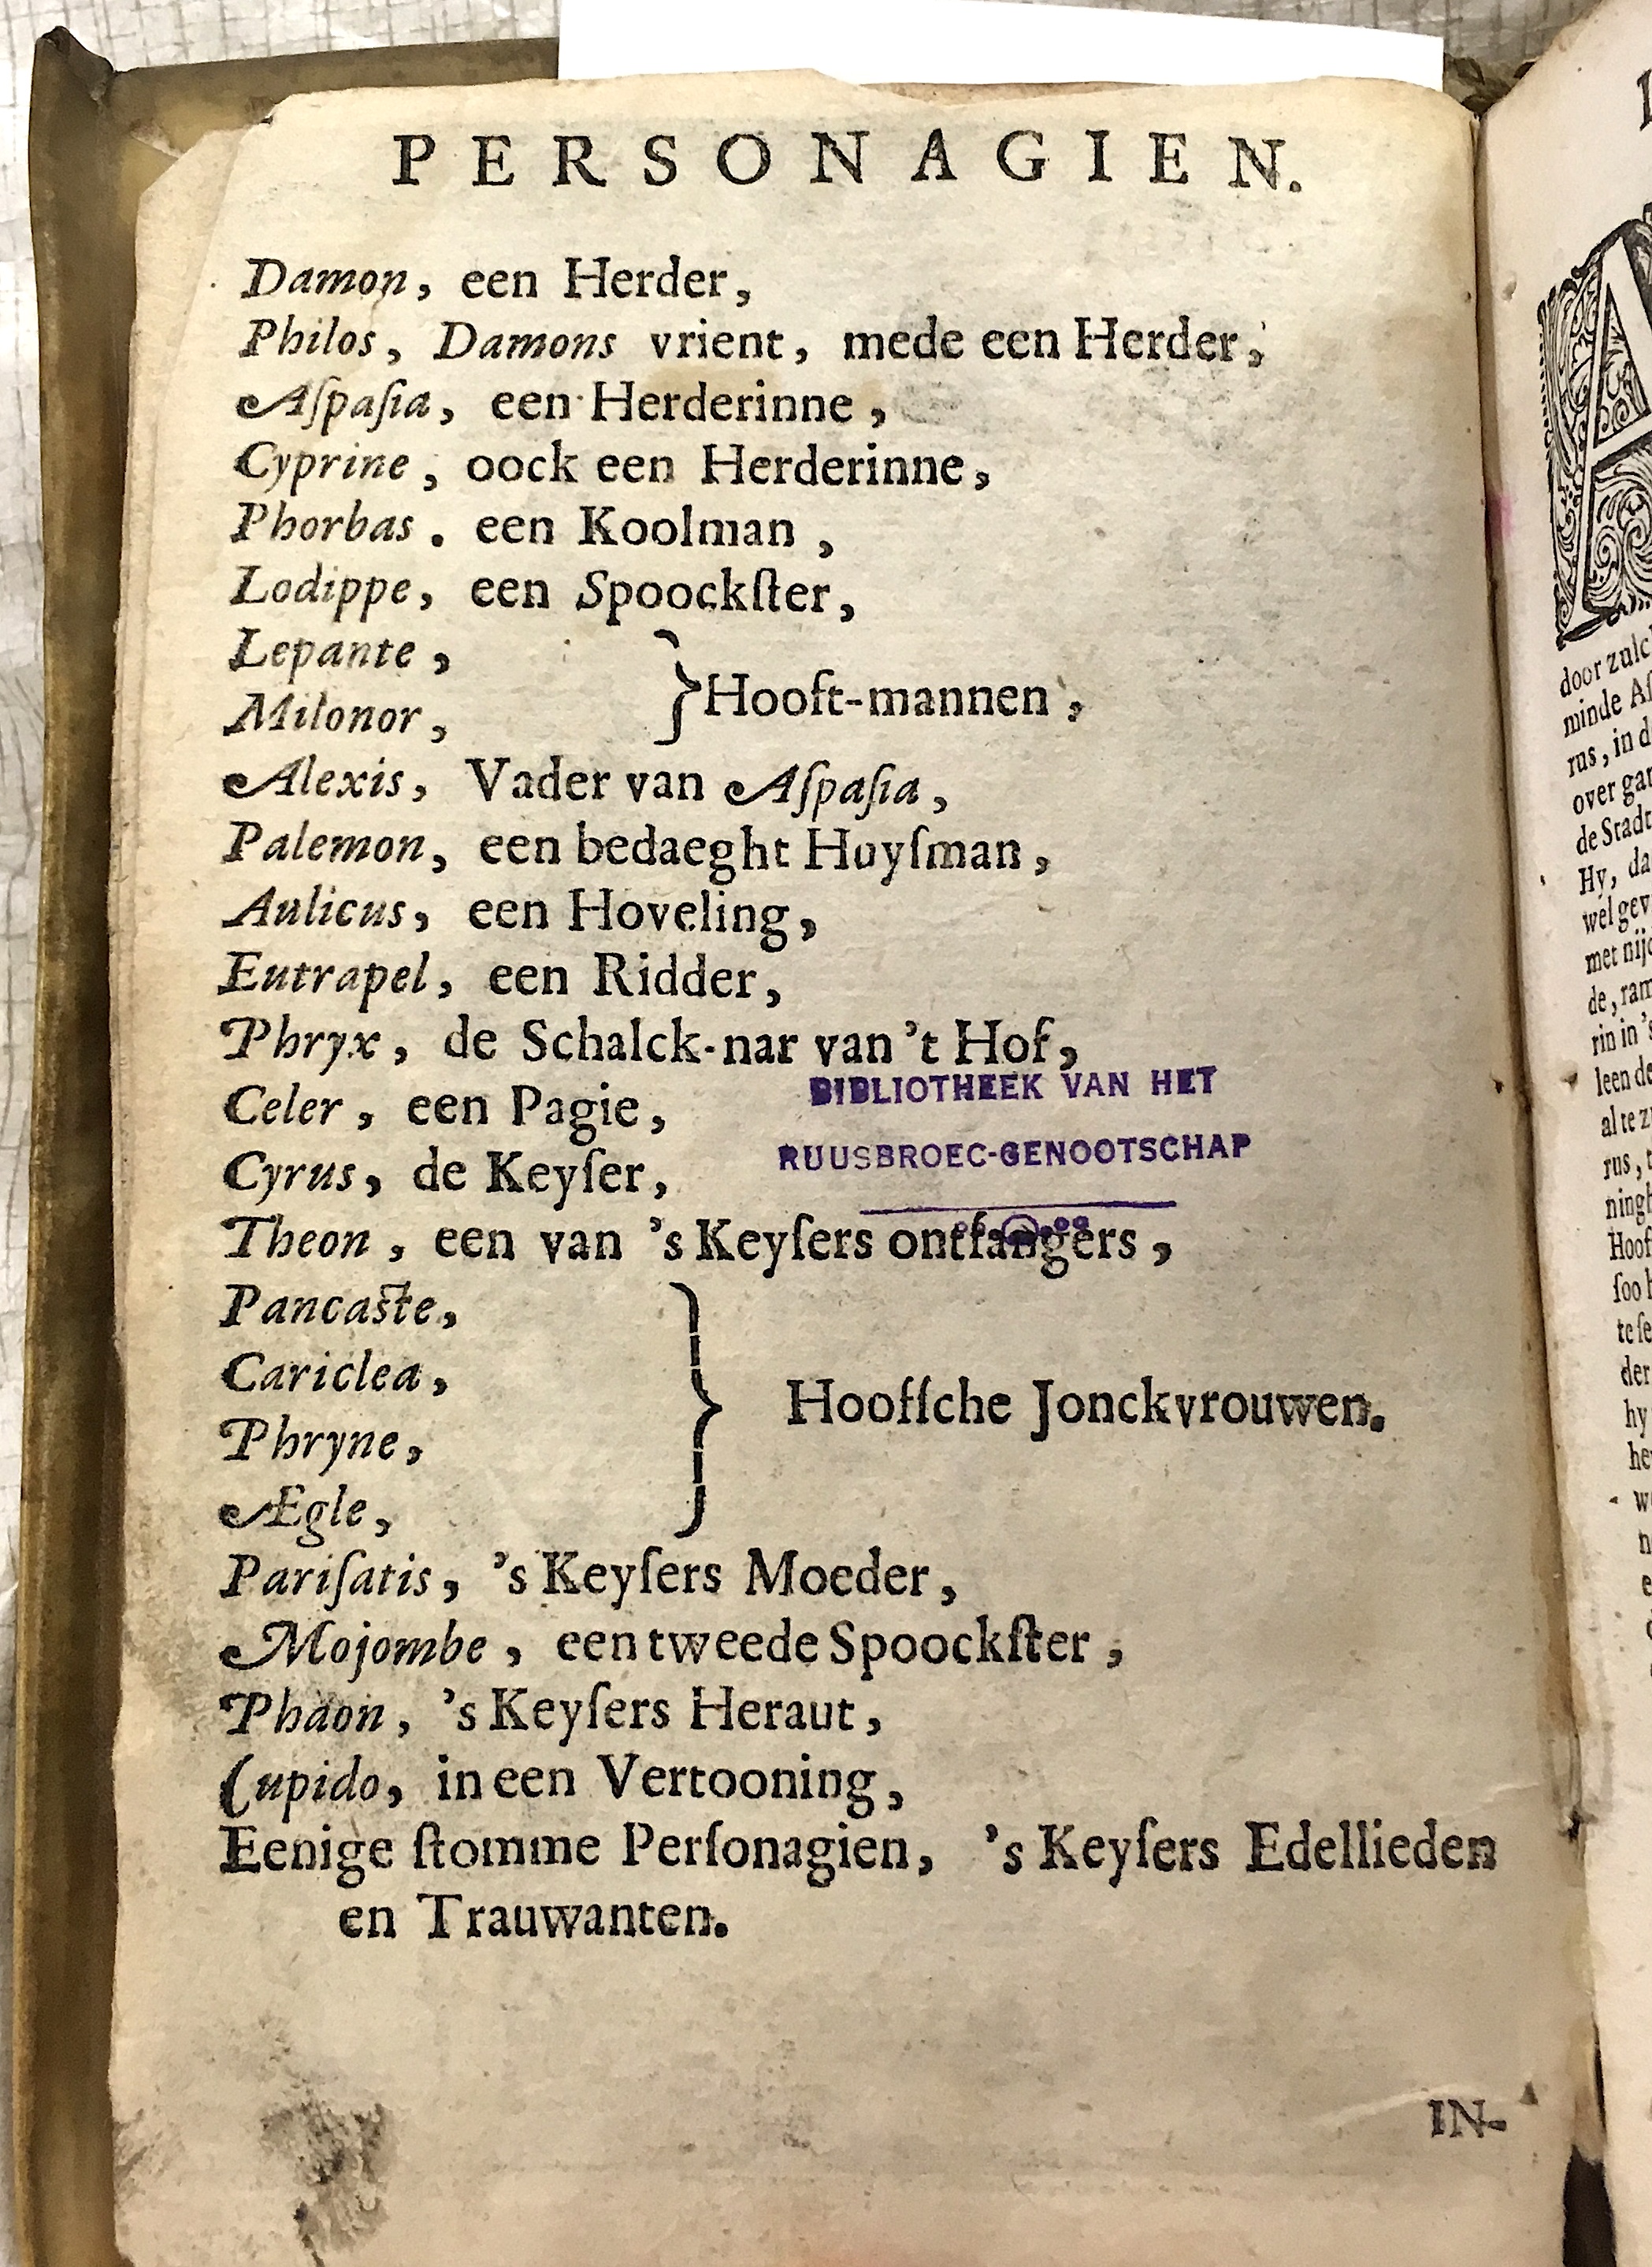 PERSONAGIEN.
Damon, een Herder,
Philos, Damons vrient, mede een Herder,
Aſpaſia, een Herderinne,
Cyprine, oock een Herderinne,
Phorbas. een Koolman,
Lodippe, een Spoockſter,
Lepante,
Milonor,
} Hooft-mannen,
Alexis, Vader van Aſpaſia,
Palemon, een bedaeght Huyſman,
Aulicus, een Hoveling,
Eutrapel, een Ridder,
Phryx, de Schalck-nar van 't Hof,
BIBLIOTHEEK VAN HET
Celer, een Pagie,
RUUSBROEC-GENOOTSCHAP
Cyrus, de Keyſer,
Theon, een van 's Keyſers ontfangers,
Pancaſte,
Cariclea,
Phryne,
Ægle,
} Hoofſche Jonckvrouwen.
Pariſatis, 's Keyſers Moeder,
Mojombe, een tweede Spoockſter,
Phaon, 's Keyſers Heraut,
Cupido, in een Vertooning,
Eenige ſtomme Perſonagien, 's Keyſers Edellieden
en Trauwanten.
IN-
door zulc
minde Aſ
rus, in d
over gar
de Stadt
Hy, da
wel gev
met nijd
de, ram
rin in 's
leen de
al te z
rus, t
ningh
Hoof
ſoo h
te ſe
der
hy
he
w
n
e